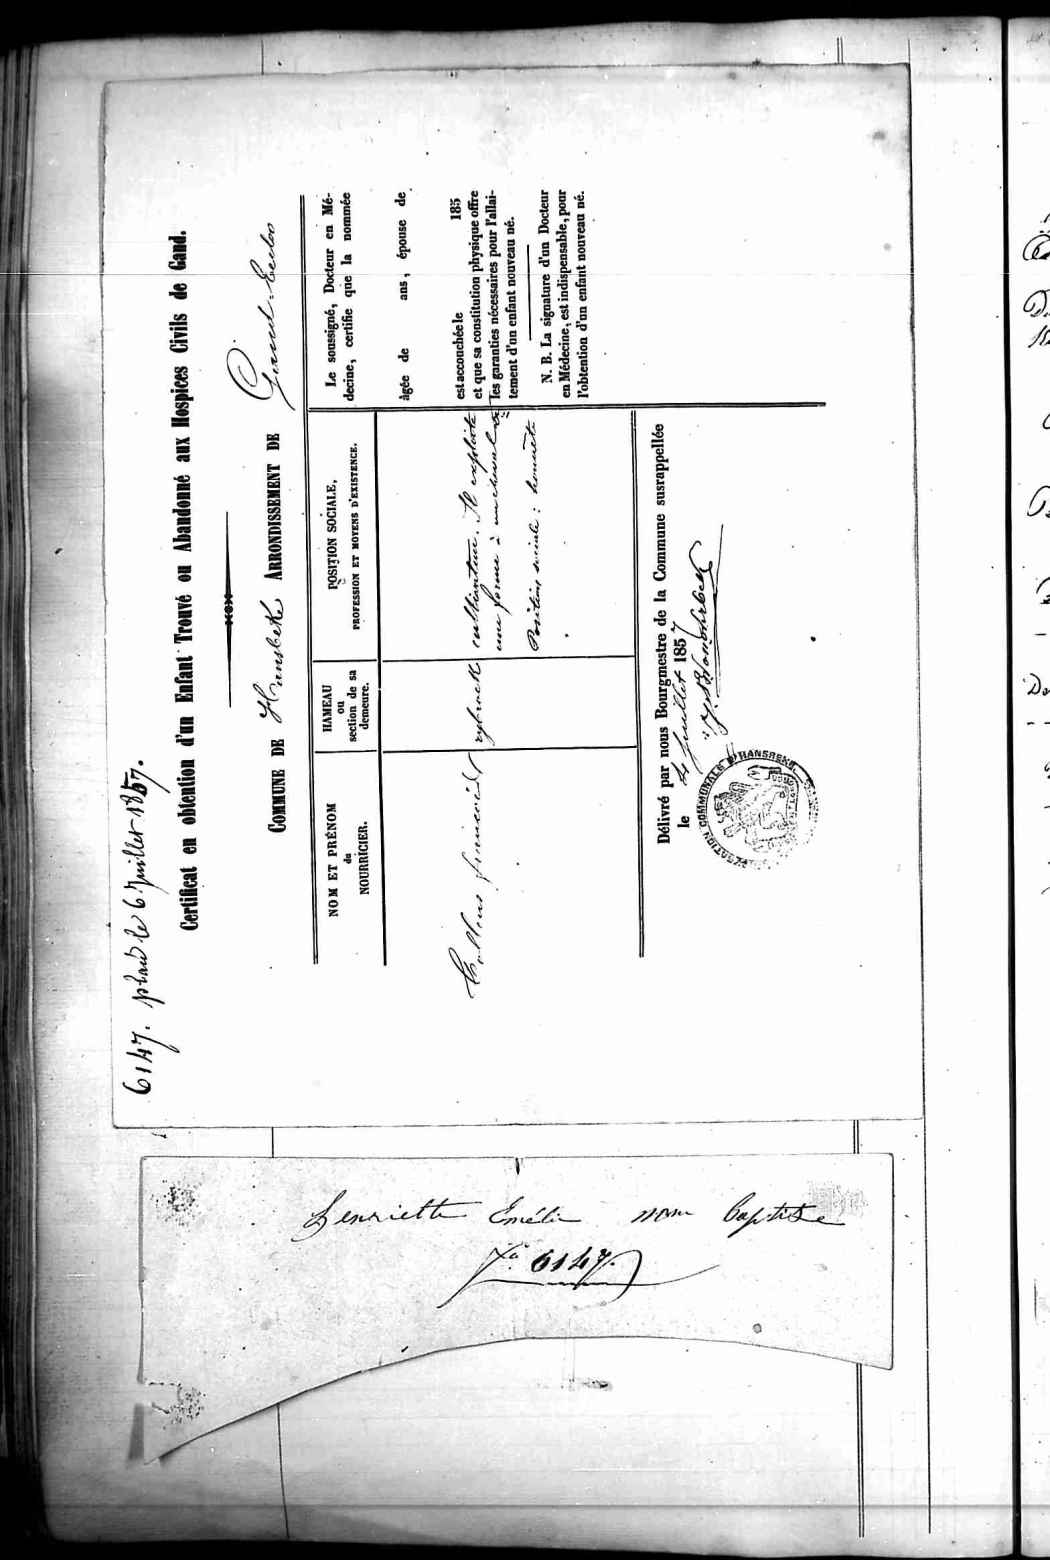 6147. placé le 6 Juillet 1857.
Certificat en obtention d'un Enfant Trouvé ou Abandonné aux Hospices Civils de Gand.
COMMUNE DE Hansbeke ARRONDISSEMENT DE Gand-Eecloo
NOM ET PRÉNOM
du
NOURRICIER.
HAMEAU
ou
section de sa
demeure.
POSITION SOCIALE,
PROFESSION ET MOYENS D'EXISTENCE.
cultivateur. Il exploite
une ferme à un cheval
Position sociale : honnête
Le soussigné, Docteur en Mé-
decine, certifie que la nommée
âgée de ans, épouse de
est accouchée le 185
et que sa constitution physique offre
les garanties nécessaires pour l'allai-
tement d'un enfant nouveau né.
N. B. La signature d'un Docteur
en Médecine, est indispensable, pour
l'obtention d'un enfant nouveau né.
Délivré par nous Bourgmestre de la Commune susrappellée
le 4 Juillet 1857
COMMUNALE HANSBEKE
Henriette Emélie nom baptise
6147.